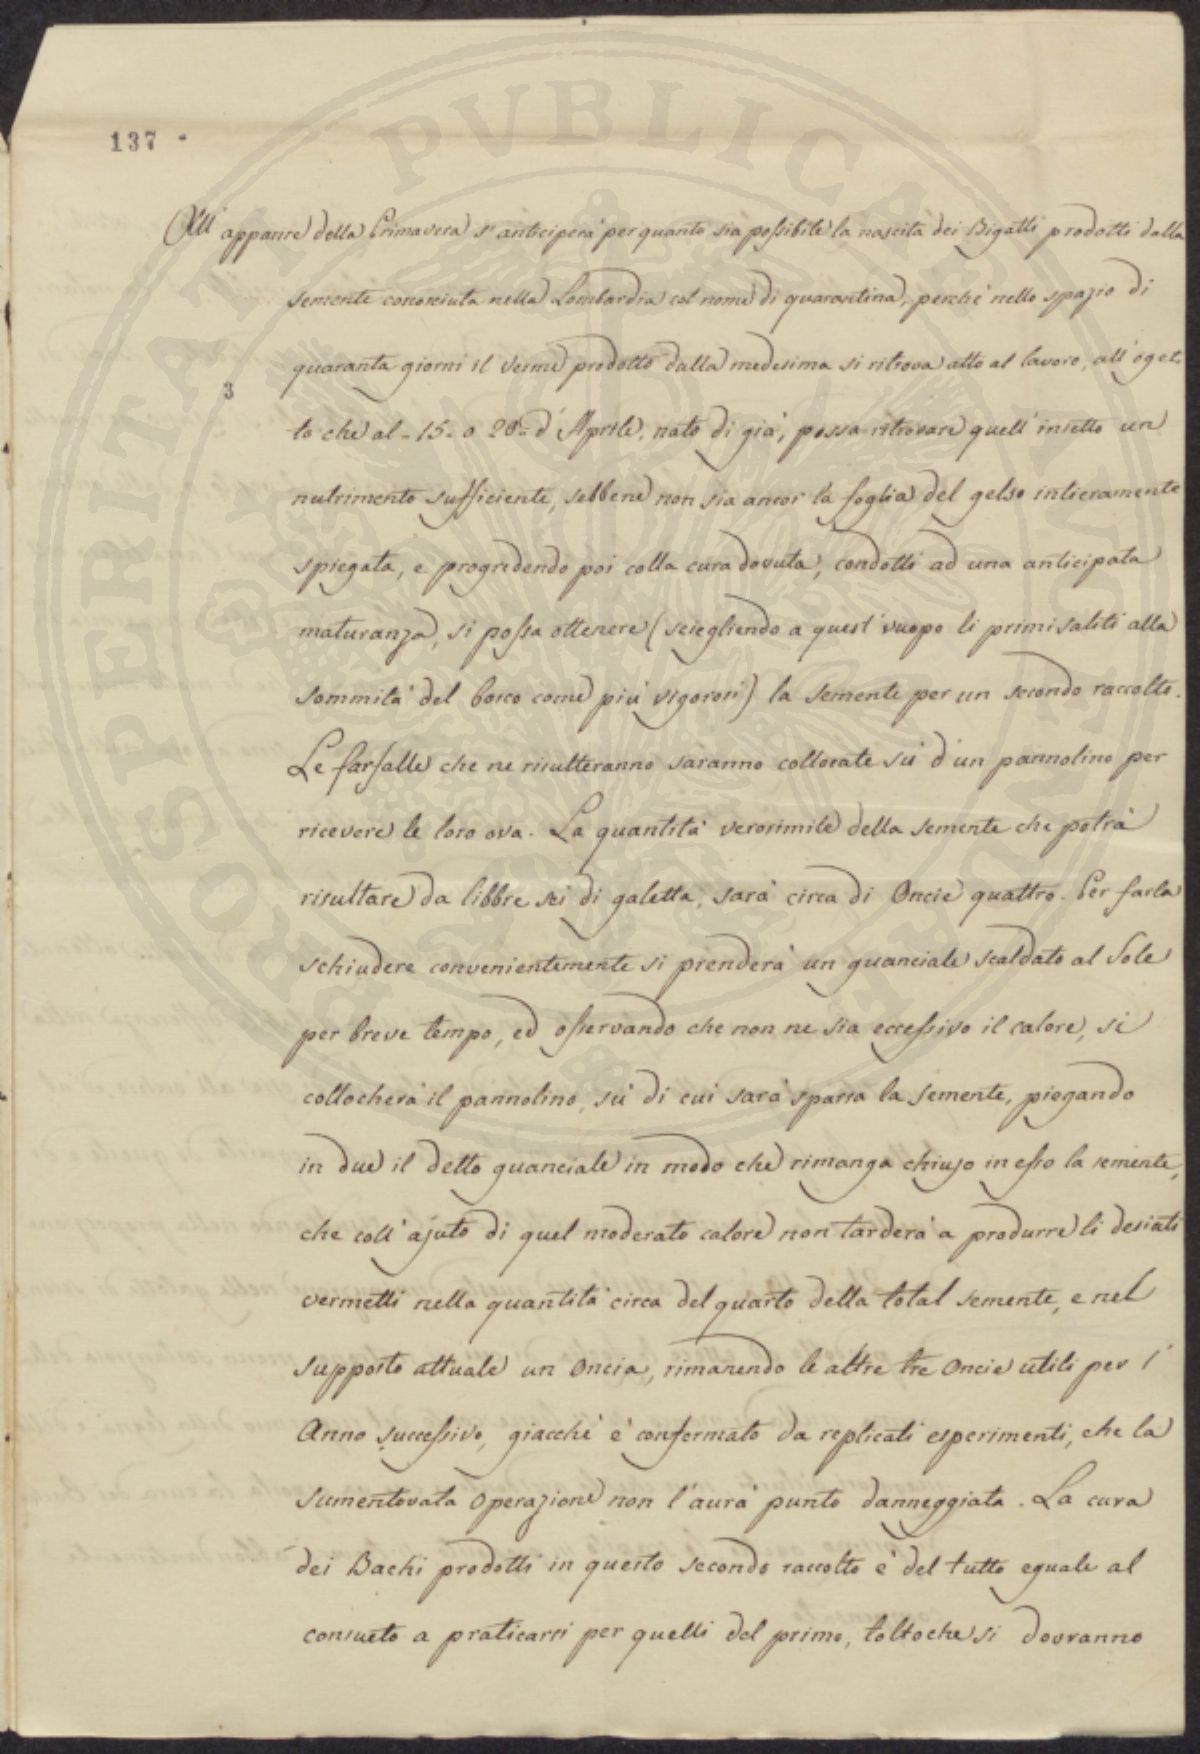 137
All' apparire della Primavera s' anticiperà per quanto sia possibile la nascita dei Bigatti prodotti dalla
semente conosciuta nella Lombardia col nome di quarantina, perchè nello spazio di
quaranta giorni il verme prodotto dalla medesima si ritrova atto al lavoro, all' oget-
3
to che al - 15 - o 20 - d' Aprile, nato di già, possa ritrovare quell' insetto un
nutrimento sufficiente, sebbene non sia ancor la foglia del gelso intieramente
spiegata, e progredendo poi colla cura dovuta, condotti ad una anticipata
maturanza, si possa ottenere (sciegliendo a quest' vuopo li primi saliti alla
sommità del bosco come più vigorosi) la semente per un secondo raccolto.
Le farfalle che ne risulteranno saranno collocate sù d' un pannolino per
ricevere le loro ova. La quantità verosimile della semente che potrà
risultare da libbre sei di galetta, sarà circa di Oncie quattro. Per farla
schiudere convenientemente si prenderà un guanciale scaldato al Sole
per breve tempo, ed osservando che non ne sia eccessivo il calore, si
collocherà il pannolino, sù di cui sarà sparsa la semente, piegando
in due il detto guanciale in modo che rimanga chiuso in esso la semente,
che coll' ajuto di quel moderato calore non tarderà a produrre li desiati
vermetti nella quantità circa del quarto della total semente, e nel
supposto attuale un Oncia, rimanendo le altre tre Oncie utili per l'
Anno successivo, giacchè è confermato da replicati esperimenti, che la
sumentovata Operazione non l' aurà punto danneggiata. La cura
dei Bachi prodotti in questo secondo raccolto è del tutto eguale al
consueto a praticarsi per quelli del primo, toltoche si dovranno
PROSPERITATI PUBLICAE AUGENDAE